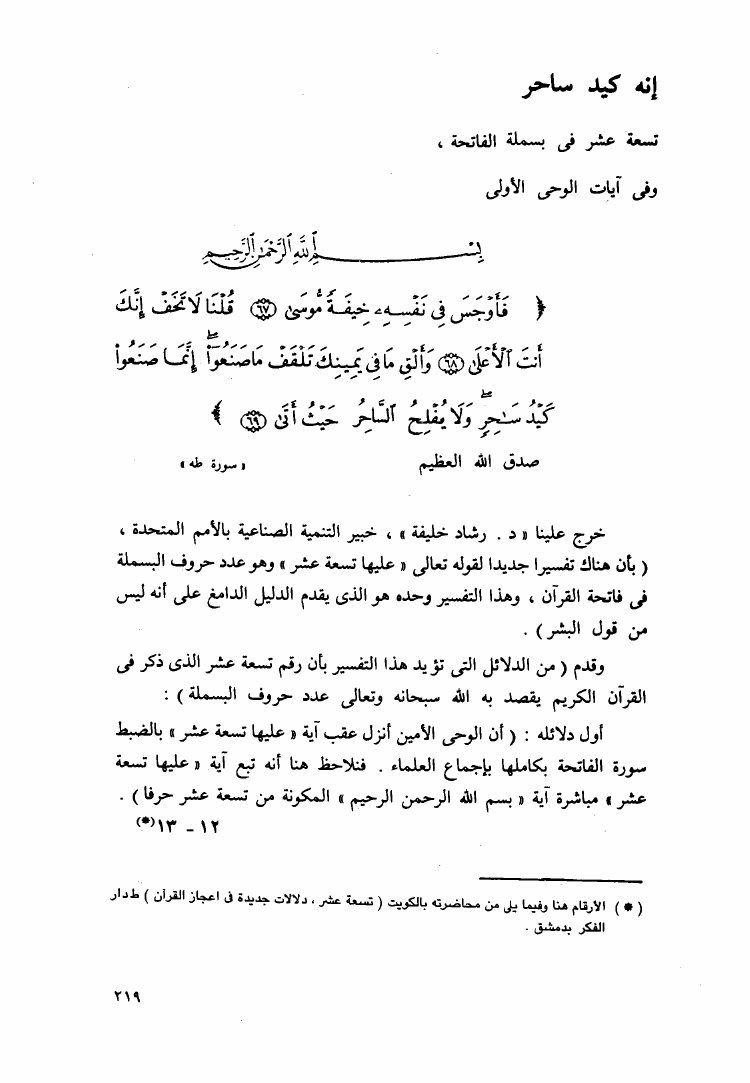 إنه كيد ساحر
تسعة عشر فى بسملة الفاتحة ،
وفى آيات الوحى الأولى
بِسْمِ ٱللَّهِ ٱلرَّحْمَٰنِ ٱلرَّحِيمِ
﴿ فَأَوْجَسَ فِى نَفْسِهِۦ خِيفَةً مُّوسَىٰ ٦٧ قُلْنَا لَا تَخَفْ إِنَّكَ
أَنتَ ٱلْأَعْلَىٰ ٦٨ وَأَلْقِ مَا فِى يَمِينِكَ تَلْقَفْ مَا صَنَعُوٓا۟ ۖ إِنَّمَا صَنَعُوا۟
كَيْدُ سَٰحِرٍ ۖ وَلَا يُفْلِحُ ٱلسَّاحِرُ حَيْثُ أَتَىٰ ٦٩ ﴾
صدق الله العظيم « سورة طه »
خرج علينا « د . رشاد خليفة » ، خبير التنمية الصناعية بالأمم المتحدة ،
( بأن هناك تفسيرا جديدا لقوله تعالى « عليها تسعة عشر » وهو عدد حروف البسملة
فى فاتحة القرآن ، وهذا التفسير وحده هو الذى يقدم الدليل الدامغ على أنه ليس
من قول البشر ) .
وقدم ( من الدلائل التى تؤيد هذا التفسير بأن رقم تسعة عشر الذى ذكر فى
القرآن الكريم يقصد به الله سبحانه وتعالى عدد حروف البسملة ) :
أول دلائله : ( أن الوحى الأمين أنزل عقب آية « عليها تسعة عشر » بالضبط
سورة الفاتحة بكاملها بإجماع العلماء . فنلاحظ هنا أنه تبع آية « عليها تسعة
عشر » مباشرة آية « بسم الله الرحمن الرحيم » المكونة من تسعة عشر حرفا ) .
١٢ - ١٣(*)
( * ) الأرقام هنا وفيما يلى من محاضرته بالكويت ( تسعة عشر ، دلالات جديدة فى اعجاز القرآن ) ط دار
الفكر بدمشق .
٢١٩